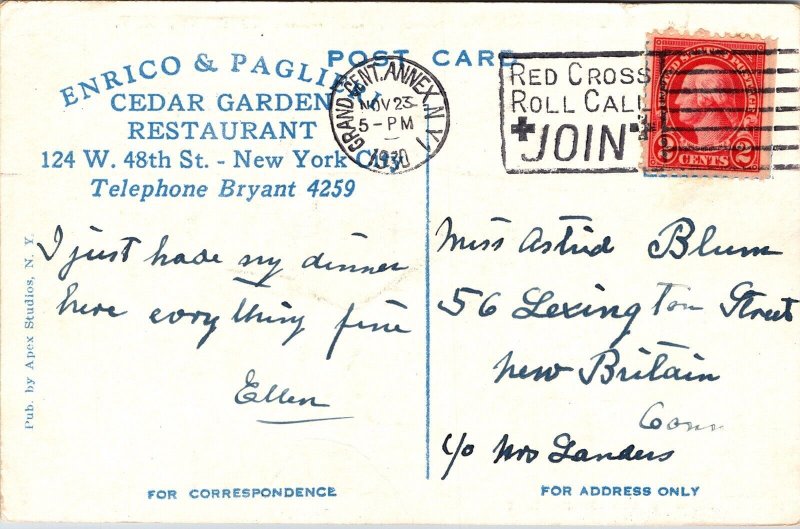 POST CARD
ENRICO & PAGLIERI
CEDAR GARDEN
RESTAURANT
124 W. 48th St. - New York City
Telephone Bryant 4259
GRAND CENT. ANNEX. N.Y. 1
NOV 23
5-PM
1930
RED CROSS
ROLL CALL
JOIN
2 CENTS 2
I just have my dinner
here evrything fine
Ellen
Miss Astrid Blum
56 Lexington Street
New Britain
Conn
c/o Mrs Landers
Pub. by Apex Studios, N. Y.
FOR CORRESPONDENCE
FOR ADDRESS ONLY